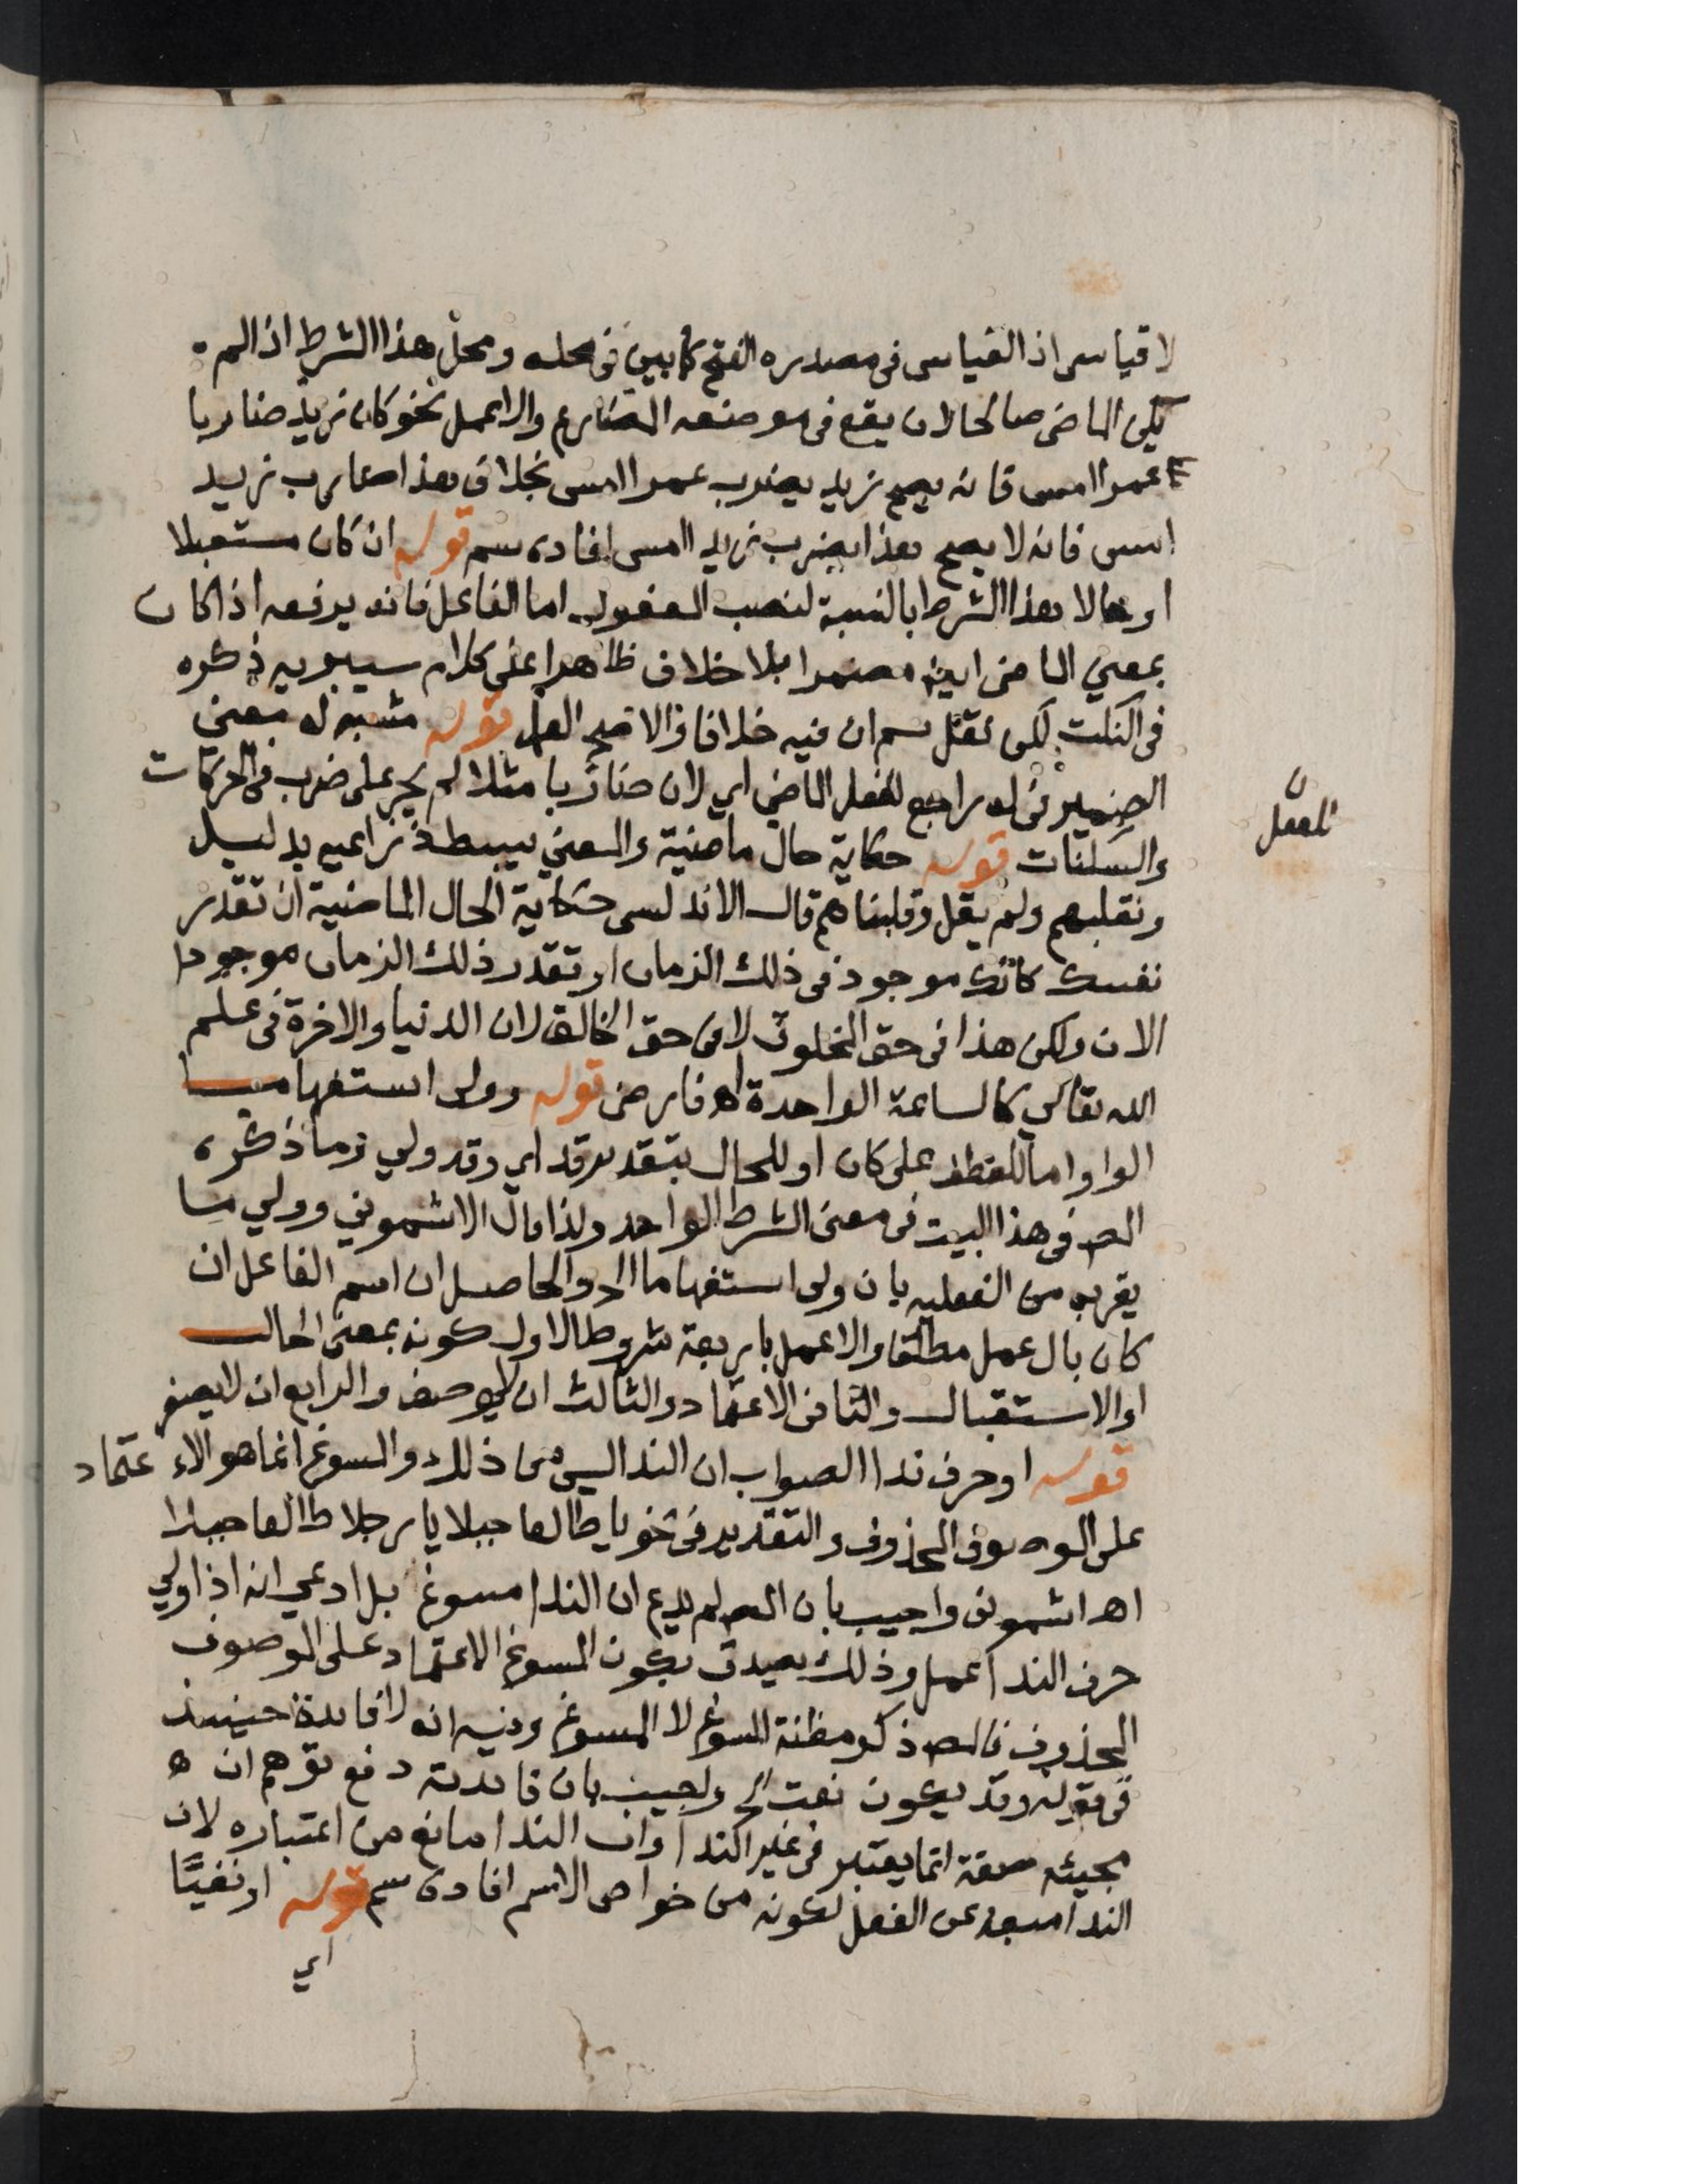 لا قياسى اذ القياسى فى مصدره الفتح كما بين فى محله ومحل هذا الشرط اذا لم
يكن الماضى صالحا لان يقع فى موضعه المضارع والا عمل نحو كان زيد ضاربا
عمرا امس فانه يصح زيد يضرب عمرا امس بخلاف هذا ضارب زيد
امس فانه لا يصح هذا يضرب زيد امس افاده سم قوله ان كان مستقبلا
او حالا هذا الشرط بالنسبة لنصب المفعول اما الفاعل فانه يرفعه اذا كان
بمعني الماضى ايض مضمرا بلا خلاف ظاهرا على كلام سيبويه ذكره
فى النكت لكن نقل سم ان فيه خلافا والاصح العمل قوله مشبه له معنى
الضمير فى له راجع للفعل الماضي اي لان ضاربا مثلا لم يجر على ضرب فى الحركات
والسكنات قوله حكاية حال ماضية والمعني يبسط ذراعيه بدليل
ونقلبهم ولم يقل وقلبناهم قال الاندلسى حكاية الحال الماضية ان تقدر
نفسك كانك موجود فى ذلك الزمان او تقدر ذلك الزمان موجودا
الان ولكن هذا فى حق المخلوق لا فى حق الخالق لان الدنيا والاخرة فى علم
الله تعالي كالساعة الواحدة اه فارضى قوله وولى استفهاما
الواو اما للعطف على كان او للحال بتقدير قد اي وقد ولي وما ذكره
المص فى هذا البيت فى معنى الشرط الواحد ولذا قال الاشموني وولي ما
يقربه من الفعلية بان ولى استفهاما الخ والحاصل ان اسم الفاعل ان
كان بال عمل مطلقا والا عمل باربعة شروط الاول كونه بمعنى الحال
او الاستقبال والثانى الاعتماد والثالث ان لا يوصف والرابع ان لا يصغر
قوله او حرف ندا الصواب ان الندا ليس من ذلك والمسوغ انما هو الاعتماد
على الموصوف المحذوف والتقدير فى نحو يا طالعا جبلا يا رجلا طالعا جبلا
اه اشمونى واجيب بان المص لم يدع ان الندا مسوغ بل ادعي انه اذا ولي
حرف الندا عمل وذلك يصدق بكون المسوغ الاعتماد على الموصوف
المحذوف فالمص ذكر مظنة المسوغ لا المسوغ وفيه انه لا فايدة حينيذ
فى قوله وقد يكون نعت الخ واجيب بان فايدته دفع توهم ان ه
مجيئه صفة انما يعتبر فى غير الندا وان الندا مانع من اعتباره لان
الندا مبعد عن الفعل لكونه من خواص الاسم افاده سم قوله او نفيًا
اي
للفعل ن